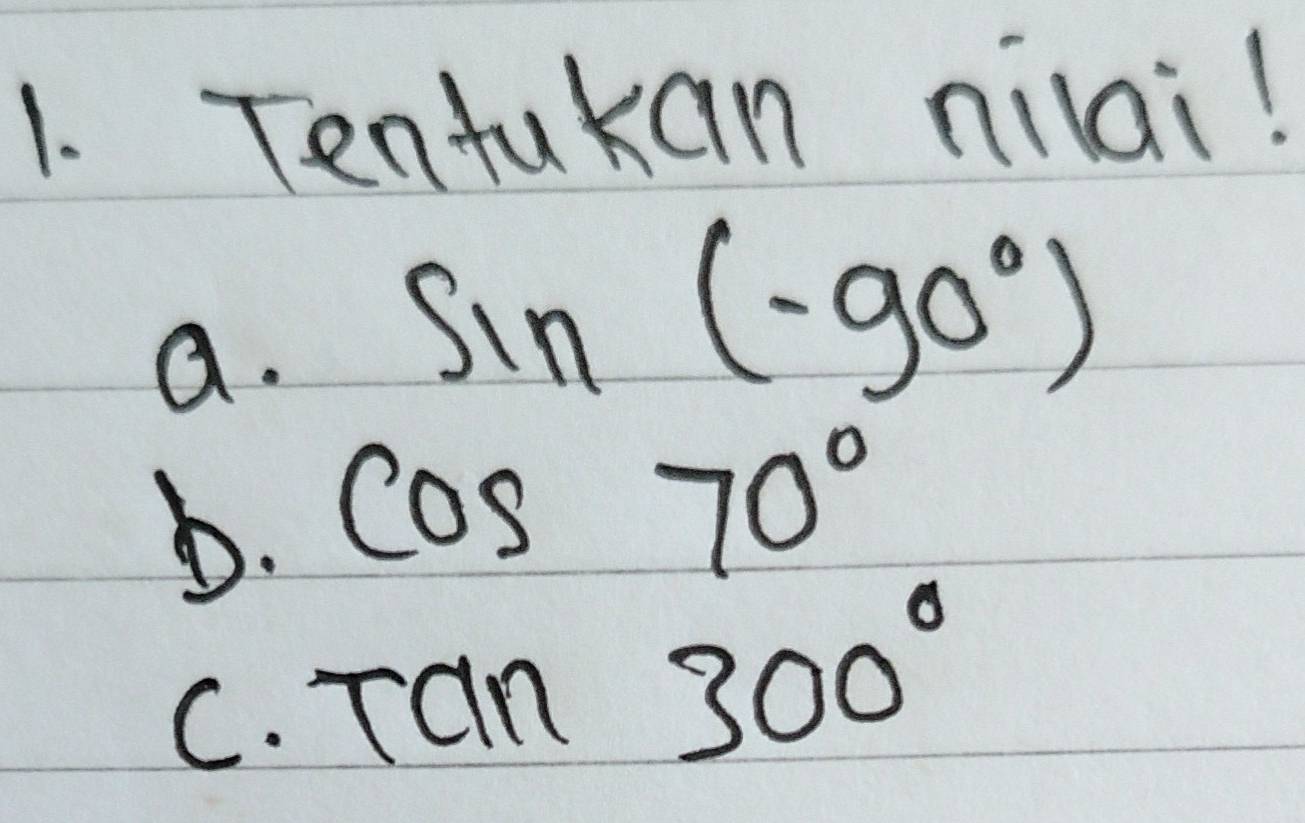 1. Tentukan nilai!
a. Sin (-90°)
b. Cos 70°
c. Tan 300°